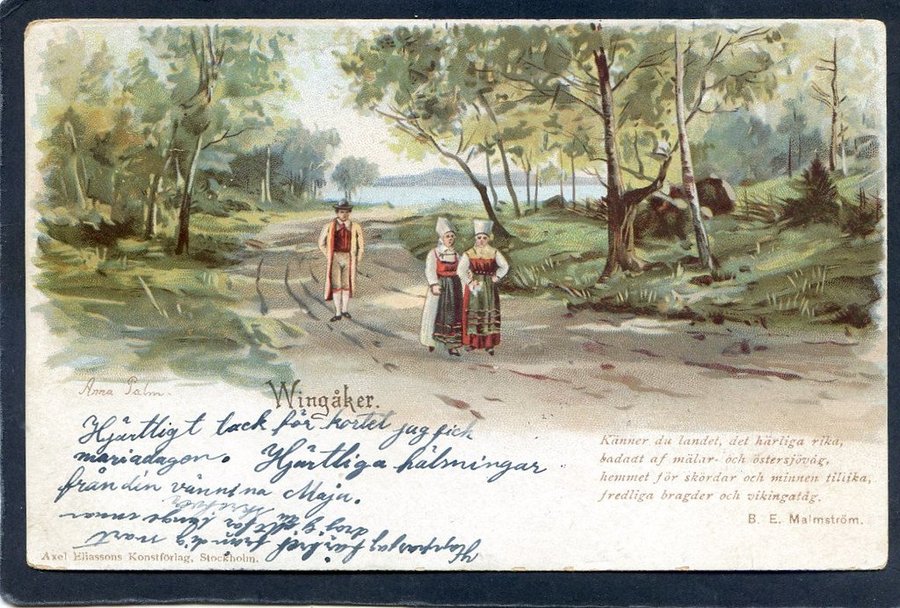 Anna Palm.
Wingåker.
Hjärtligt tack för kortet jag fick
mariadagen. Hjärtliga hälsningar
från din väninna Maja.
Känner du landet, det härliga rika,
badadt af mälar- och östersjövåg,
hemmet för skördar och minnen tillika,
fredliga bragder och vikingatåg.
B. E. Malmström.
Axel Eliassons Konstförlag, Stockholm.
Hoppas jag får bref från dig snart